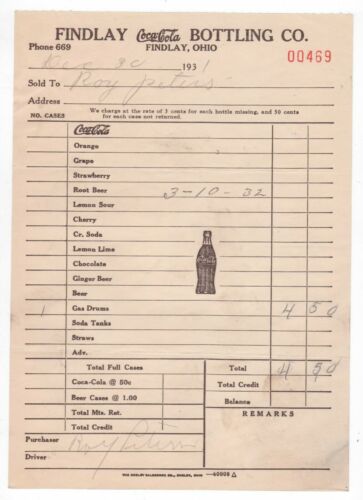 FINDLAY Coca-Cola BOTTLING CO.
Phone 669 FINDLAY, OHIO
00469
Dec 30 1931
Sold To Roy Peters
Address
We charge at the rate of 3 cents for each bottle missing, and 50 cents
for each case not returned.
NO. CASES
Coca-Cola
Orange
Grape
Strawberry
Root Beer 3-10-32
Lemon Sour
Cherry
Cr. Soda
Lemon Lime
Chocolate
Ginger Beer
Beer
1 Gas Drums 4 50
Soda Tanks
Straws
Adv.
Total Full Cases Total 4 50
Coca-Cola @ 50c Total Credit
Beer Cases @ 1.00 Balance
Total Mts. Ret. REMARKS
Total Credit
Purchaser Roy Peters
Driver